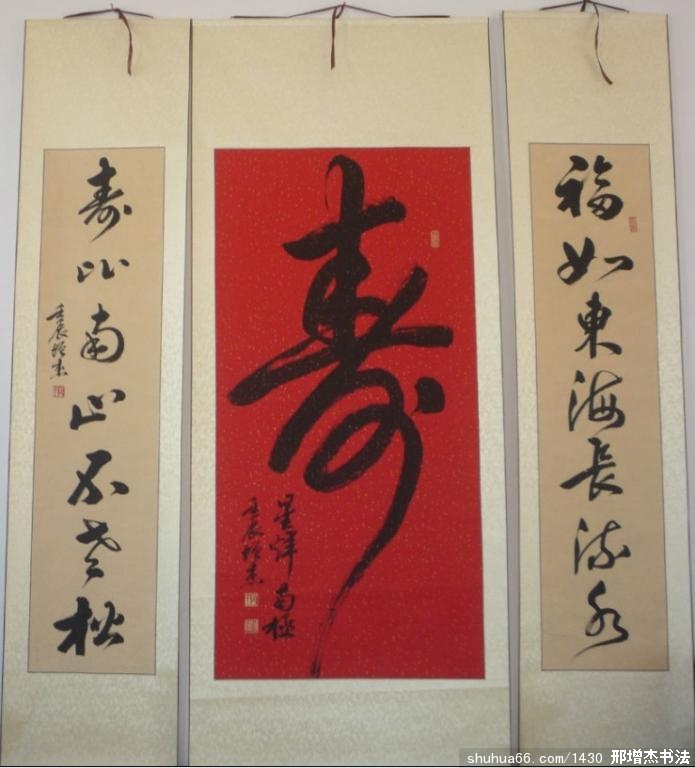 福如東海長流水
寿
星輝南極
壬辰增杰
寿比南山不老松
壬辰增杰
shuhua66.com/1430 邢增杰书法